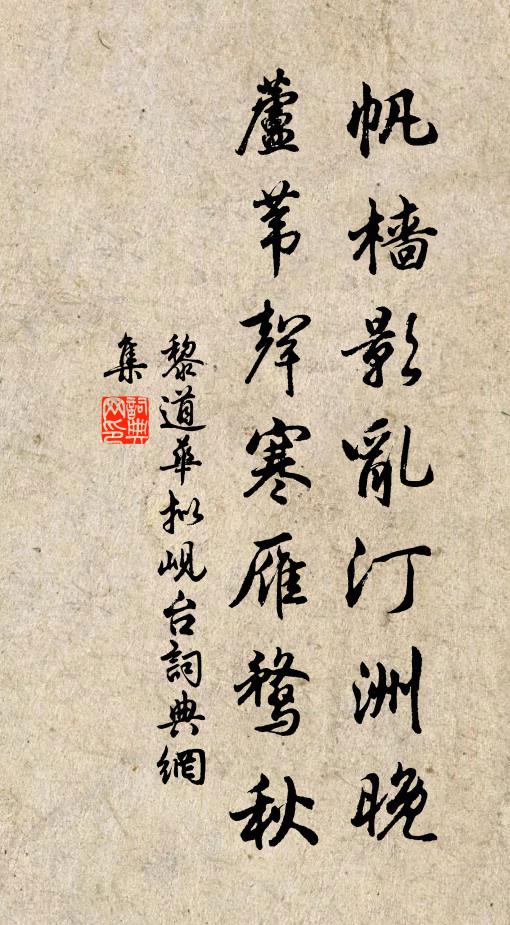 帆檣影亂汀洲晚
蘆葦聲寒雁鶩秋
黎道華拟峴台詞典網
集
詞典網印